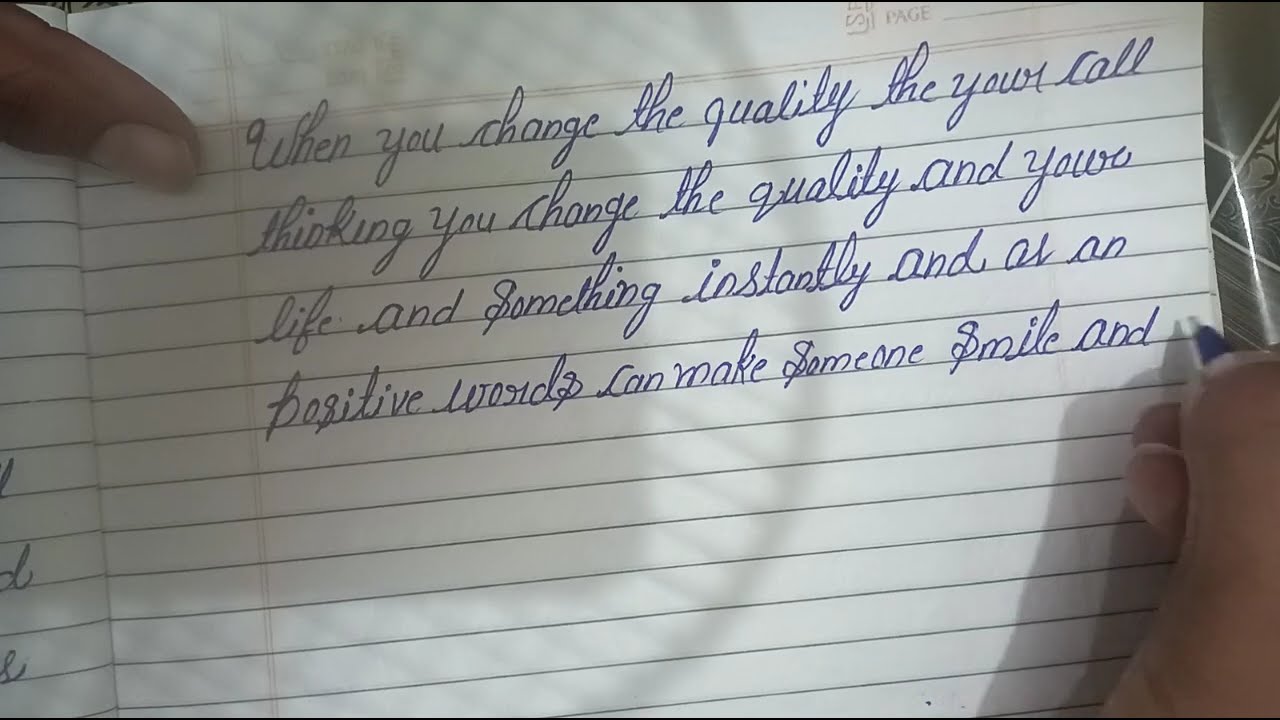 PAGE
When you change the quality the your call
thinking you change the quality and your
life and something instantly and as an
positive words can make someone smile and